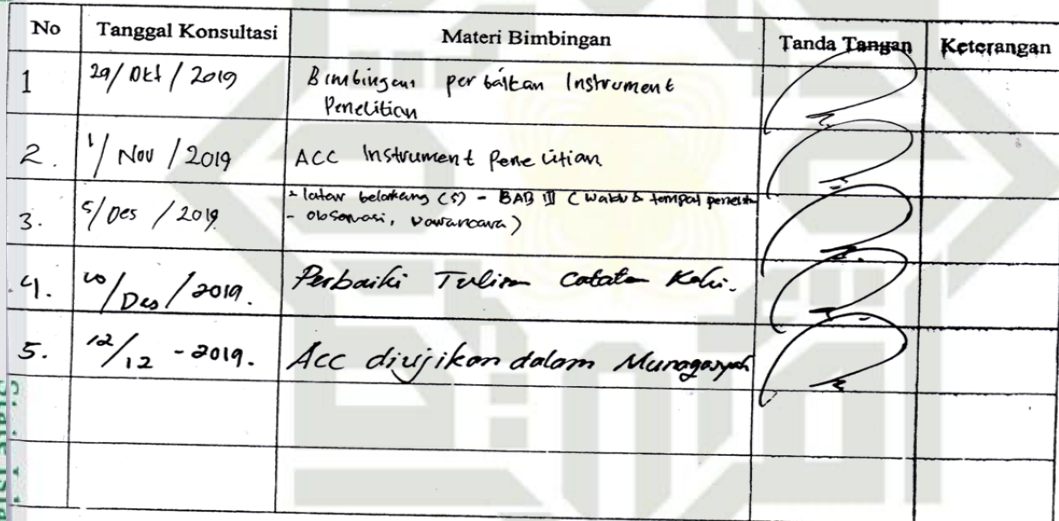 No Tanggal Konsultasi Materi Bimbingan Tanda Tangan Keterangan
1 29/Okt/2019 Bimbingan perbaikan Instrument
Penelitian
2. 1/Nov/2019 ACC Instrument Penelitian
3. 5/Des/2019 - latar belakang (5) - BAB III (waktu & tempat penelitian
- observasi, wawancara)
4. 10/Des/2019. Perbaiki Tulisan Catatan Kaki.
5. 12/12-2019. Acc diujikan dalam Munaqasyah